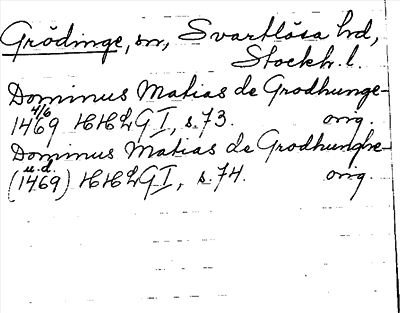 Grödinge, sn, Svartlösa hd,
Stockh. l.
Dominus Matias de Grodhunge
4/6
1469 HHLG I, s. 73. orig.
Dominus Matias de Grodhunghe
u.d.
(1469) HHLG I, s. 74. orig.